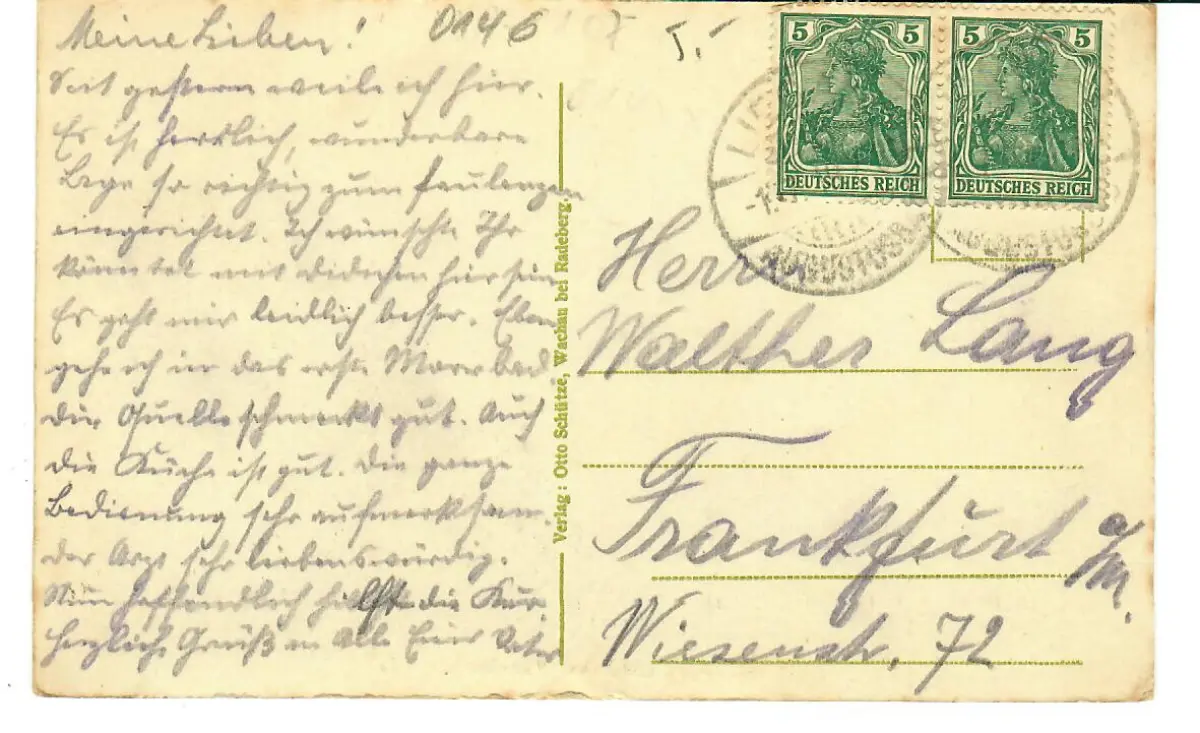 Meine Lieben!
0146
5.-
Seit gestern weile ich hier.
Es ist herrlich, wunderbare
Lage so richtig zum faulenzen
eingerichtet. Ich wünschte Ihr
könntet mit hier sein
Es geht mir leidlich besser. Eben
gehe ich in das erste Moorbad.
die Quelle schmeckt gut. Auch
die Küche ist gut. die ganze
Bedienung sehr aufmerksam.
der Arzt sehr liebenswürdig.
Nun hoffendlich hilft die Kur.
herzliche Grüße an Alle Euer Vater
Verlag: Otto Schütze, Wachau bei Radeberg.
5 5
DEUTSCHES REICH
5 5
DEUTSCHES REICH
AUGUSTUSB
Herrn
Walther Lang
Frankfurt a/M.
Wiesenstr. 72